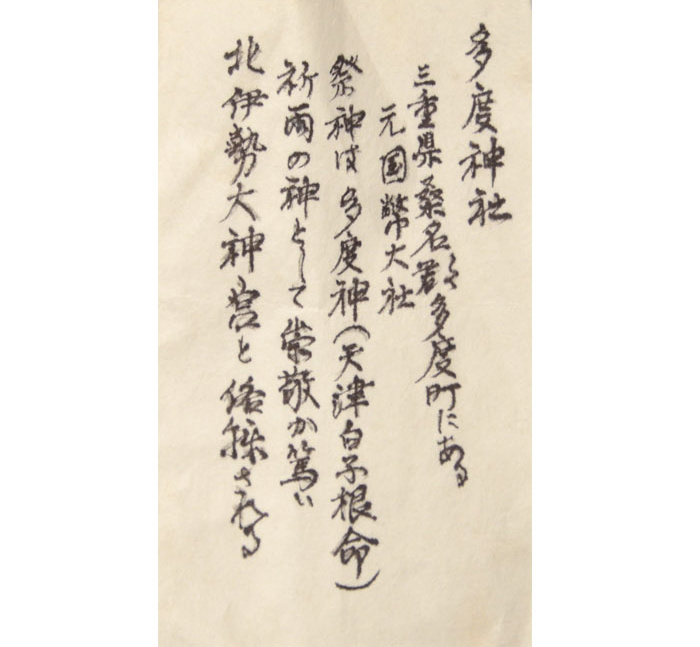 多度神社
三重県桑名郡多度町にある
元国幣大社
祭神は多度神(天津白子根命)
祈雨の神として崇敬が篤い
北伊勢大神宮と俗称される